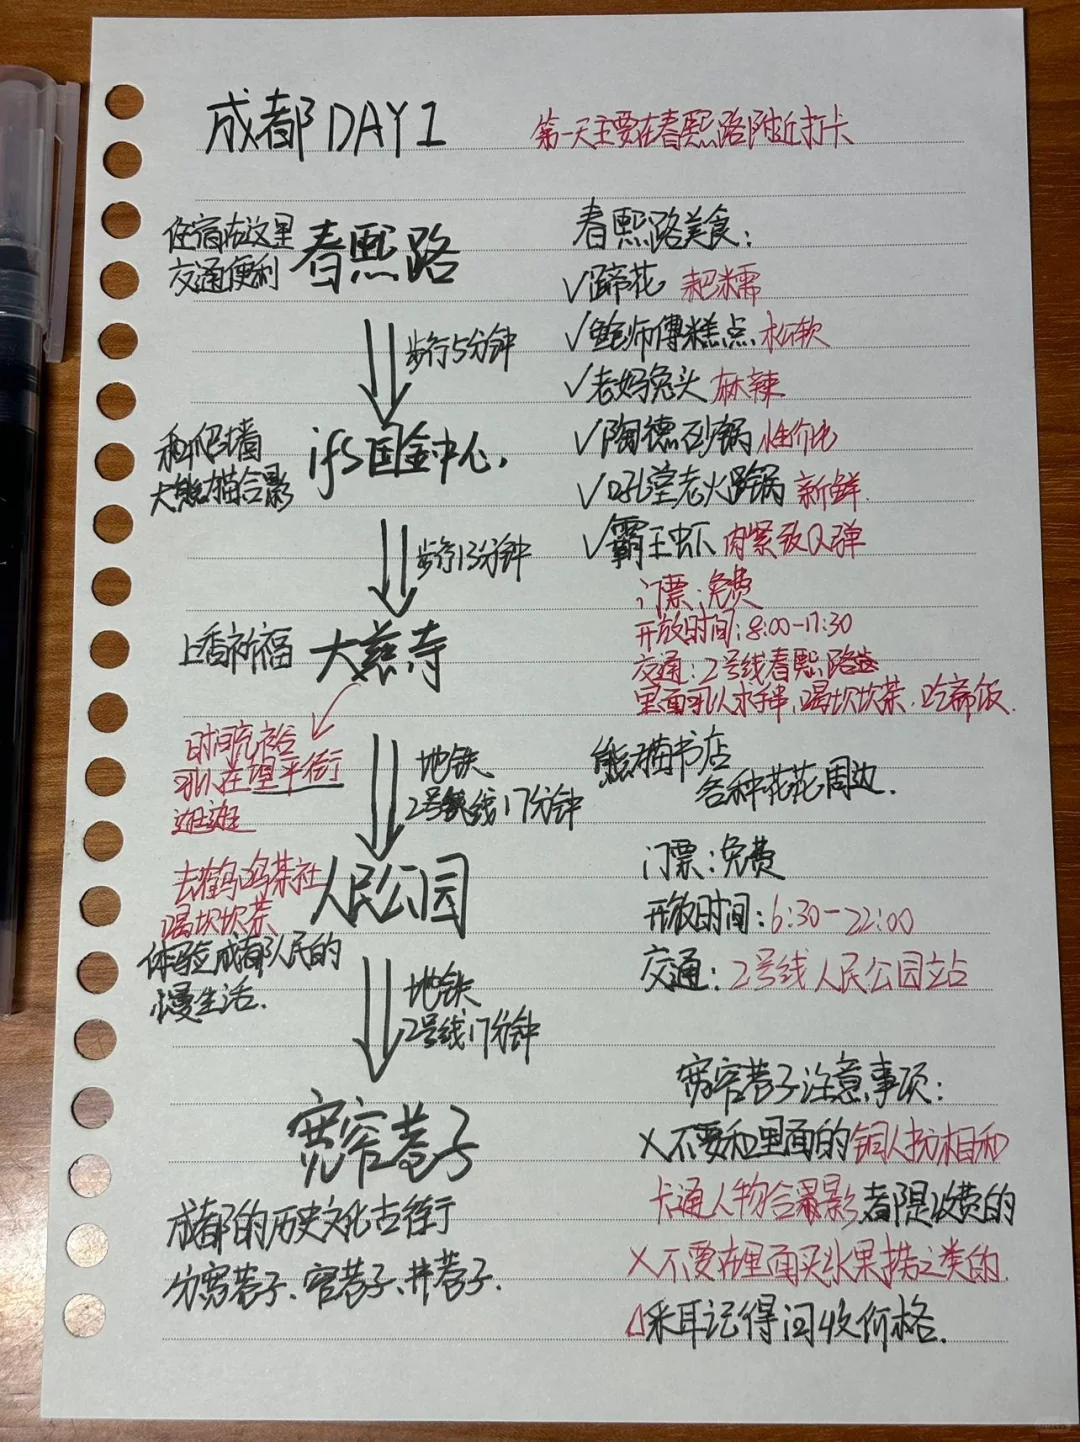 成都DAY1
第一天主要在春熙路附近打卡
住宿在这里
交通便利
春熙路
步行5分钟
春熙路美食:
✓蹄花 耙糯
✓鲍师傅糕点 松软
✓老妈兔头 麻辣
✓陶德砂锅 性价比
✓孔堂老火锅 新鲜
✓霸王虾 肉紧致Q弹
和爬墙
大熊猫合影
ifs国金中心,
步行13分钟
上香祈福
大慈寺
门票:免费
开放时间:8:00-17:30
交通:2号线春熙路
里面可以求手串,喝坎坎茶,吃斋饭.
时间充裕
可以在望平街
逛逛
地铁
2号线17分钟
熊猫书店
各种花花周边.
去鹤鸣茶社
喝坎坎茶
体验成都人民的
慢生活.
人民公园
门票:免费
开放时间:6:30-22:00
交通:2号线人民公园站
地铁
2号线17分钟
宽窄巷子
成都的历史文化古街
分宽巷子、窄巷子、井巷子.
宽窄巷子注意事项:
×不要和里面的铜人扮相和
卡通人物合影,都是收费的
×不要在里面买水果捞之类的.
△采耳记得问收价格.